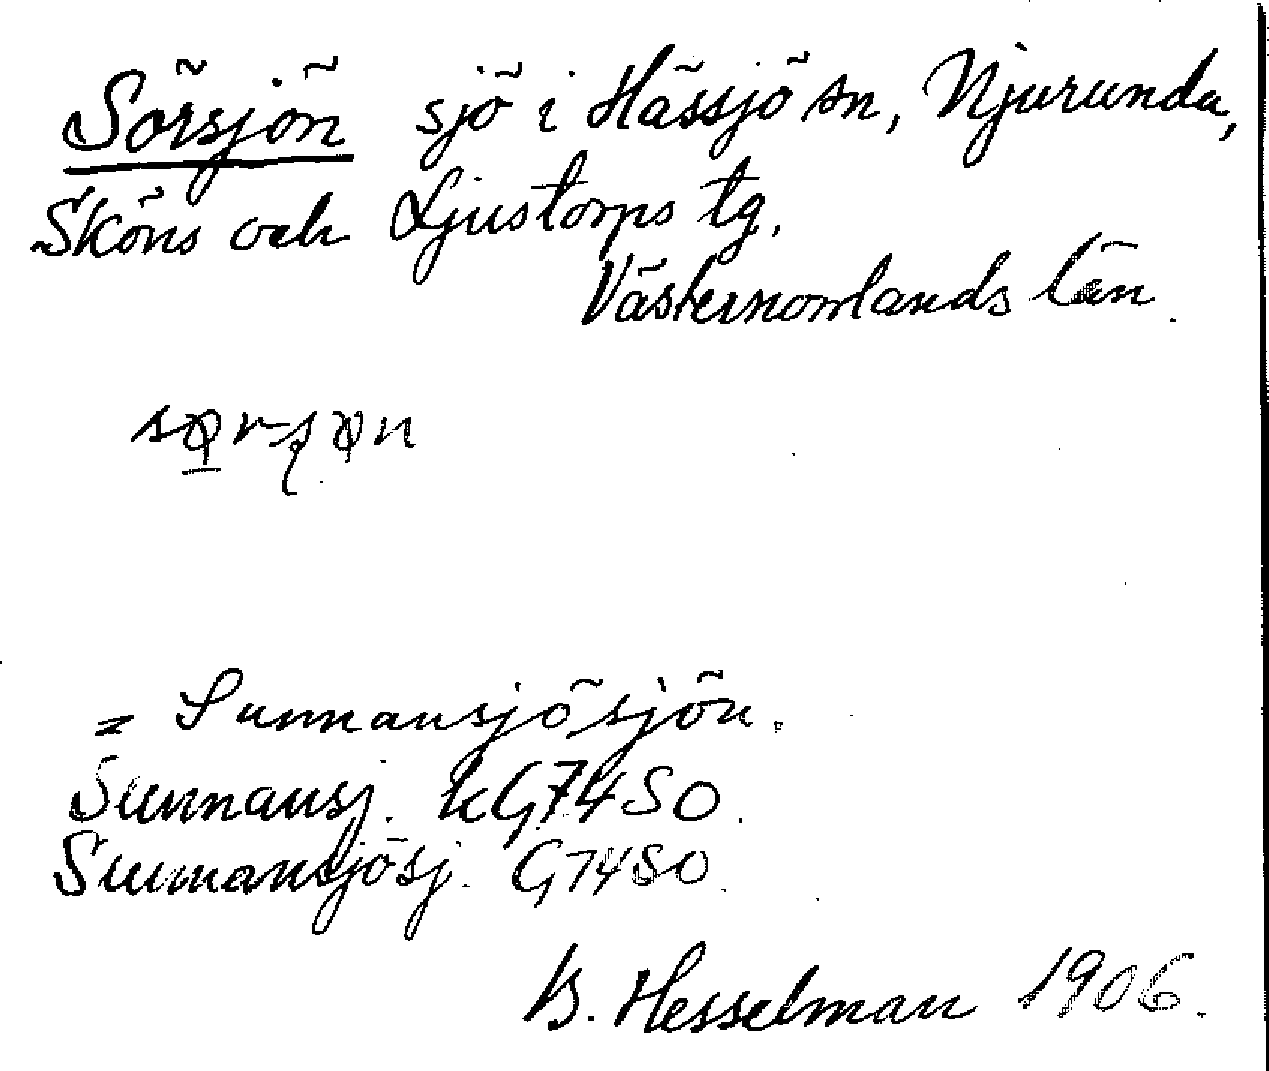 Sörsjön sjö i Hässjö sn, Njurunda,
Sköns och Ljustorps tg.
Västernorrlands län.
sø̱r-ʂøn
= Sunnansjösjön.
Sunnansj. kG74SO.
Sunnansjösj. G74SO.
B. Hesselman 1906.